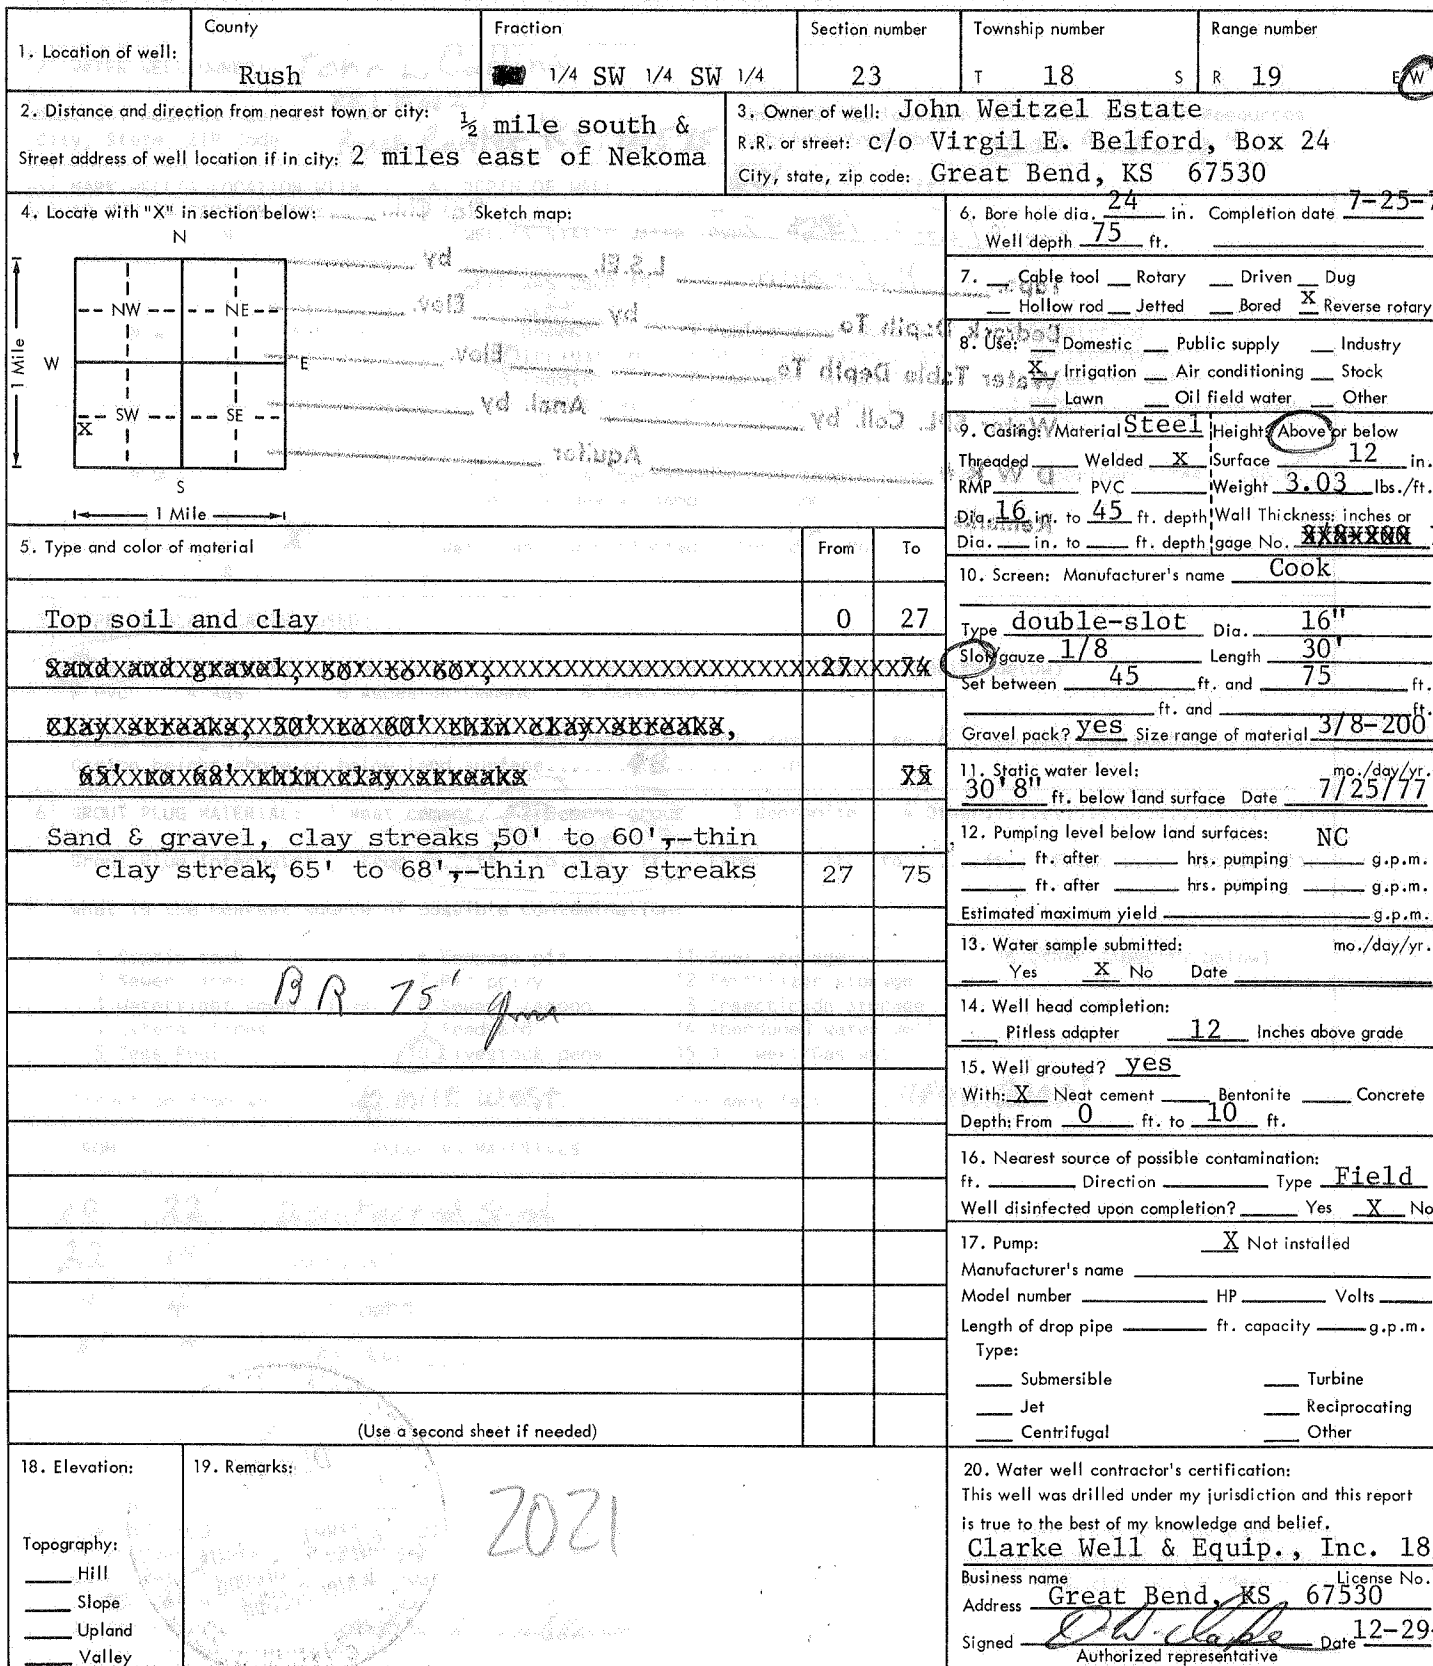 1. Location of well:
County
Rush
Fraction
1/4 SW 1/4 SW 1/4
Section number
23
Township number
T 18 S
Range number
R 19 E W
2. Distance and direction from nearest town or city: ½ mile south &
Street address of well location if in city: 2 miles east of Nekoma
3. Owner of well: John Weitzel Estate
R.R. or street: c/o Virgil E. Belford, Box 24
City, state, zip code: Great Bend, KS 67530
4. Locate with "X" in section below: Sketch map:
N
NW NE
W E
1 Mile
SW SE
X
S
1 Mile
6. Bore hole dia. 24 in. Completion date 7-25-7
Well depth 75 ft.
7. Cable tool Rotary Driven Dug
Hollow rod Jetted Bored X Reverse rotary
8. Use: Domestic Public supply Industry
X Irrigation Air conditioning Stock
Lawn Oil field water Other
9. Casing: Material Steel Height: Above or below
Threaded Welded X Surface 12 in.
RMP PVC Weight 3.03 lbs./ft.
Dia. 16 in. to 45 ft. depth Wall Thickness: inches or
Dia. in. to ft. depth gage No.
5. Type and color of material From To
Top soil and clay 0 27
Sand and gravel, 50' to 60', 27 74
Clay streaks, 50' to 60' thin clay streaks,
65' to 68' thin clay streaks 75
Sand & gravel, clay streaks ,50' to 60',-thin
clay streak, 65' to 68',-thin clay streaks 27 75
BR 75'
10. Screen: Manufacturer's name Cook
Type double-slot Dia. 16"
Slot/gauze 1/8 Length 30'
Set between 45 ft. and 75 ft.
ft. and ft.
Gravel pack? yes Size range of material 3/8-200
11. Static water level: mo./day/yr.
30'8" ft. below land surface Date 7/25/77
12. Pumping level below land surfaces: NC
ft. after hrs. pumping g.p.m.
ft. after hrs. pumping g.p.m.
Estimated maximum yield g.p.m.
13. Water sample submitted: mo./day/yr.
Yes X No Date
14. Well head completion:
Pitless adapter 12 Inches above grade
15. Well grouted? yes
With: X Neat cement Bentonite Concrete
Depth: From 0 ft. to 10 ft.
16. Nearest source of possible contamination:
ft. Direction Type Field
Well disinfected upon completion? Yes X No
17. Pump: X Not installed
Manufacturer's name
Model number HP Volts
Length of drop pipe ft. capacity g.p.m.
Type:
Submersible Turbine
Jet Reciprocating
Centrifugal Other
(Use a second sheet if needed)
18. Elevation:
Topography:
Hill
Slope
Upland
Valley
19. Remarks:
2021
20. Water well contractor's certification:
This well was drilled under my jurisdiction and this report
is true to the best of my knowledge and belief.
Clarke Well & Equip., Inc. 18
Business name License No.
Address Great Bend, KS 67530
Signed Date 12-29-
Authorized representative